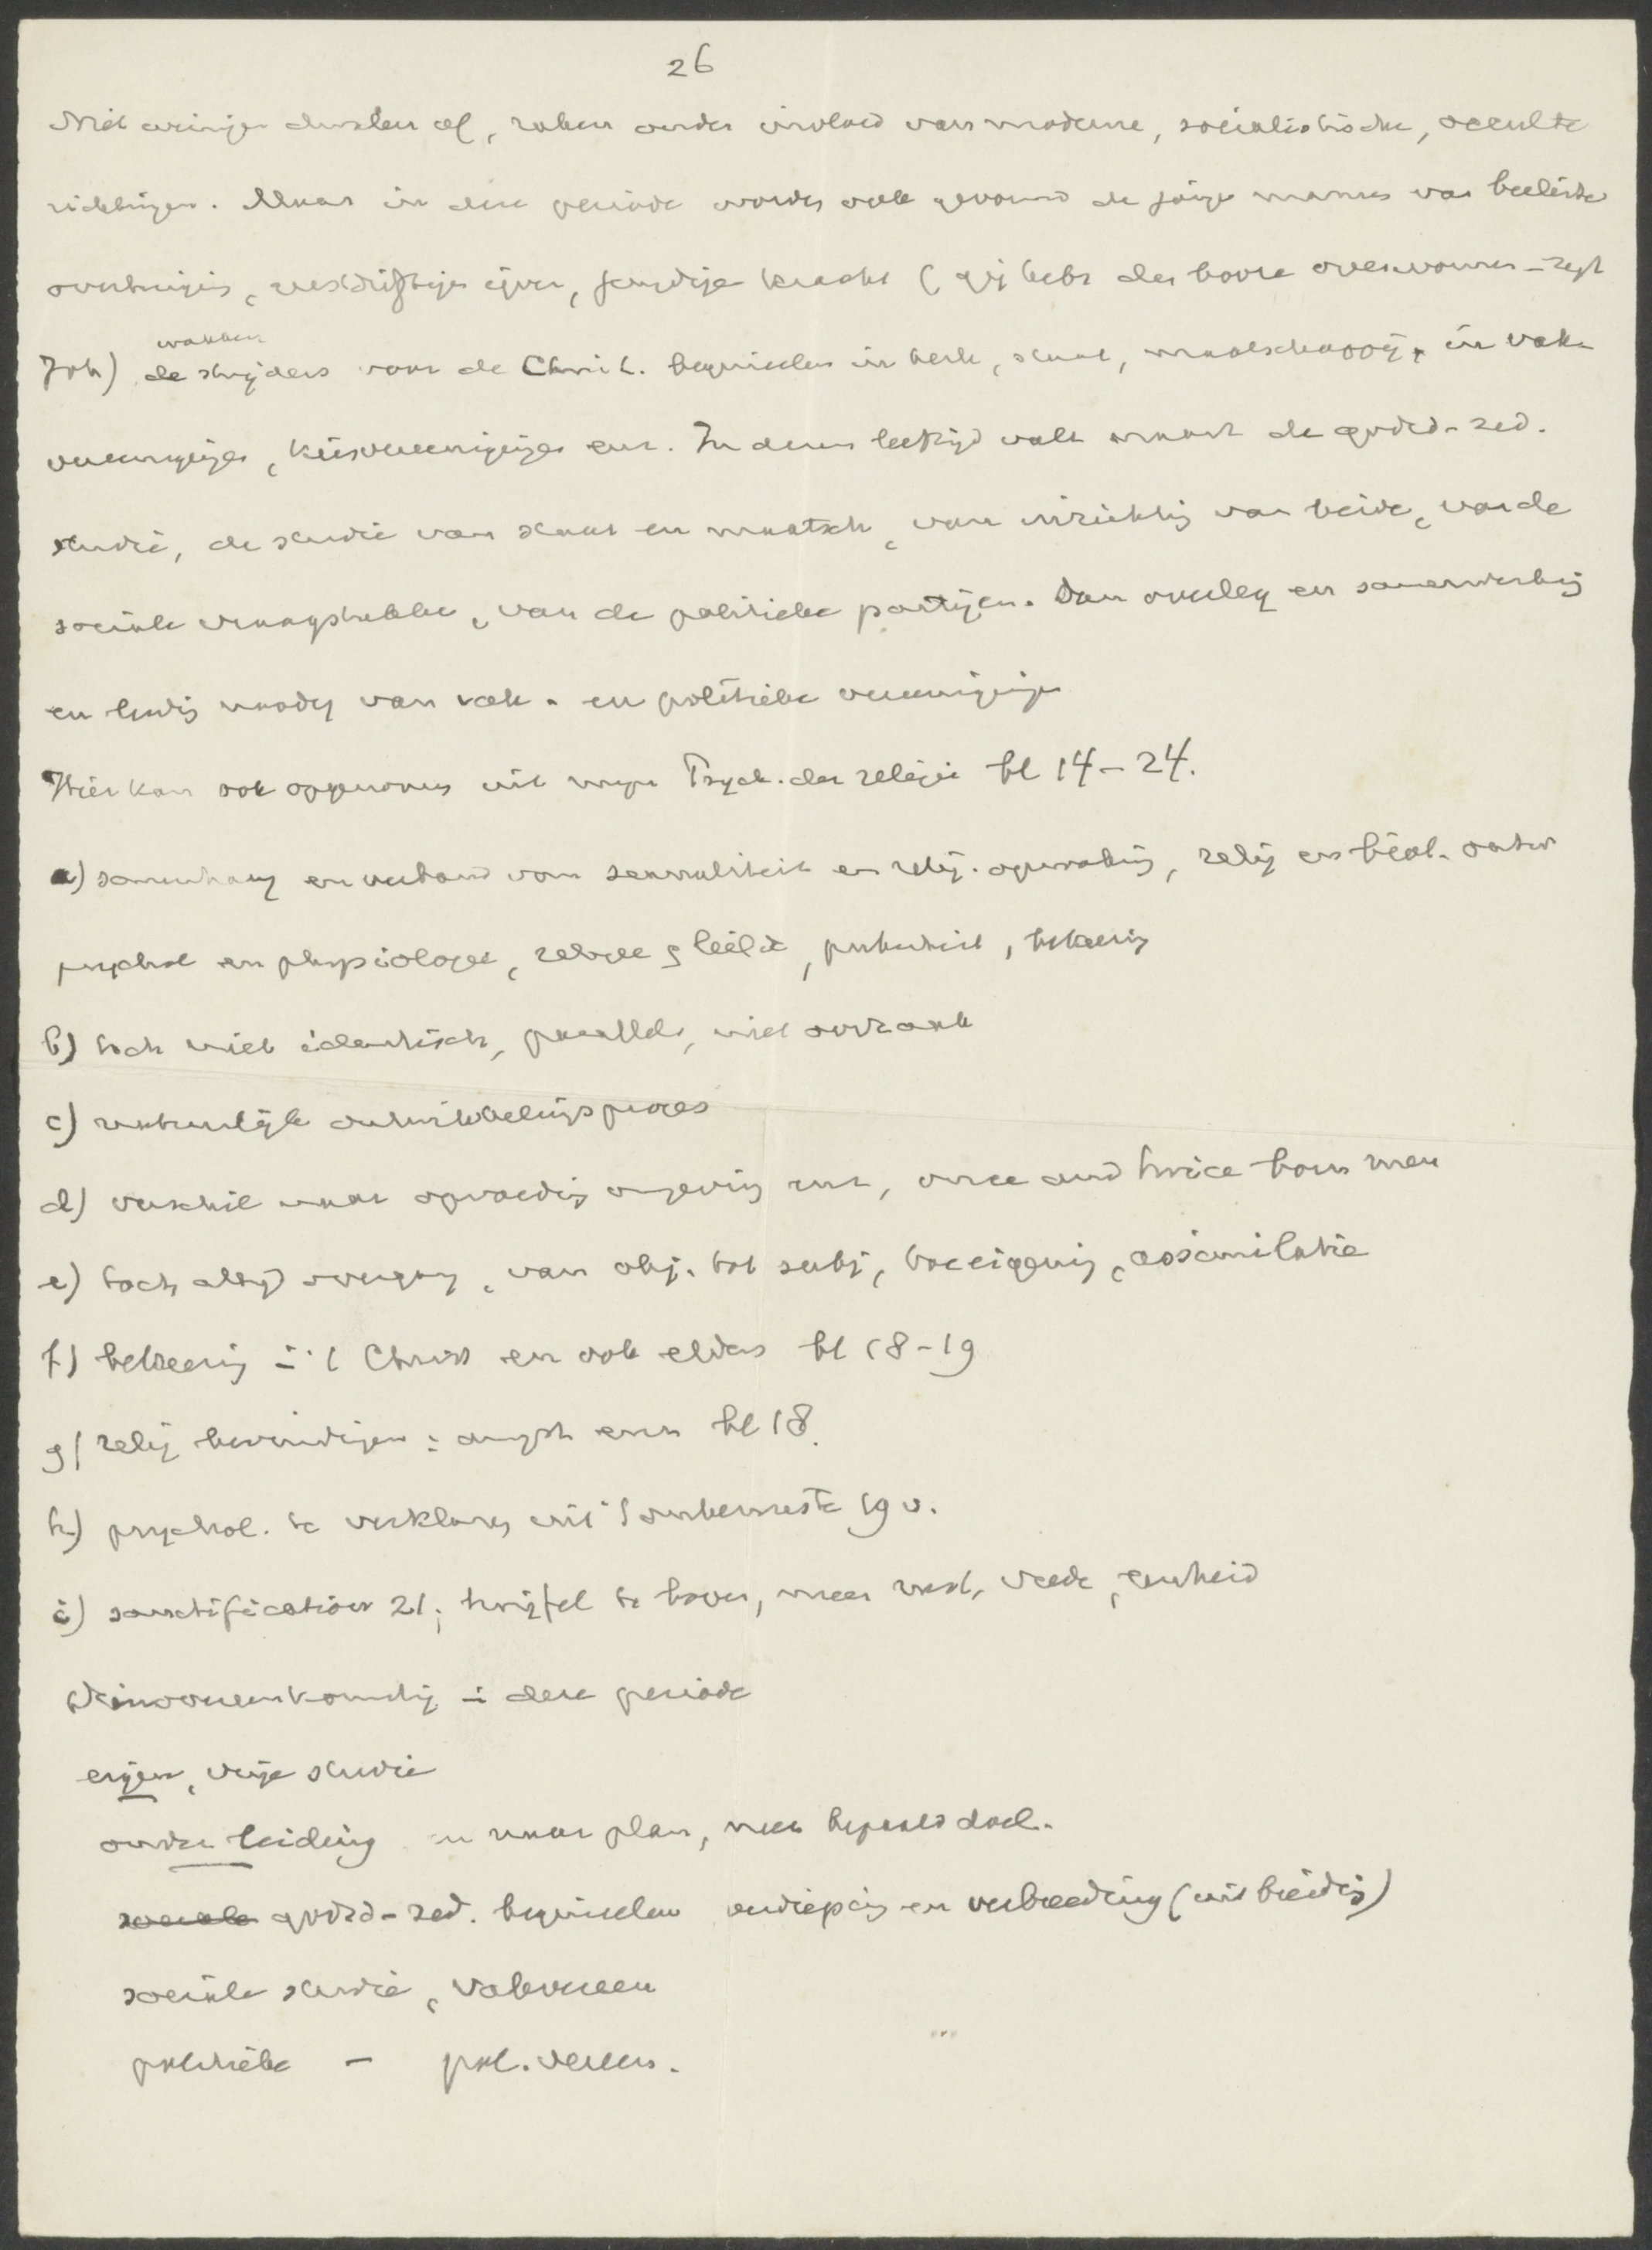 26
Niet weinigen dwalen af, raken onder invloed van moderne, socialistische, occulte
richtingen. Maar in deze periode worden ook gevormd de jonge mannen van besliste
overtuiging, geestdriftige ijver, jeugdige kracht (gij hebt den booze overwonnen - zegt
Joh) de strijders voor de Christ. beginselen in kerk, staat, maatschappij, in vak-
wakkere
vereenigingen, kiesvereenigingen enz. In dezen leeftijd valt naast de godsd-zed.
studie, de studie van staat en maatsch, van inrichting van beide, van de
sociale vraagstukken, van de politieke partijen. Dan overleg en samenwerking
en leiding noodig van vak- en politieke vereenigingen
Hier kan ook opgenomen uit mijn Psych. der religie bl 14-24.
a) samenhang en verband van sexualiteit en relig. openbaring, relig en biol. ontw
psychol en physiologie, religie & liefde, puberteit, bekeering
b) toch niet identisch, parallel, niet oorzaak
c) natuurlijk ontwikkelingsproces
d) verschil naar opvoeding omgeving enz, once and twice born men
e) toch altijd overgang, van obj. tot subj, toeeigening, assimilatie
f) bekeering in 't Christ en ook elders bl 18-19
g) relig bevindingen: angst enz bl 18.
h) psychol. te verklaren uit 't onbewuste 19 v.
i) sanctification 21; twijfel te boven, meer rust, vrede, eenheid
Samenkomstig in deze periode
eigen, vrije studie
onder leiding en naar plan, met bepaald doel.
sociale godsd-zed. beginselen verdieping en verbreeding (uitbreiding)
sociale studie, vakvereen
politieke - pol. vereen.